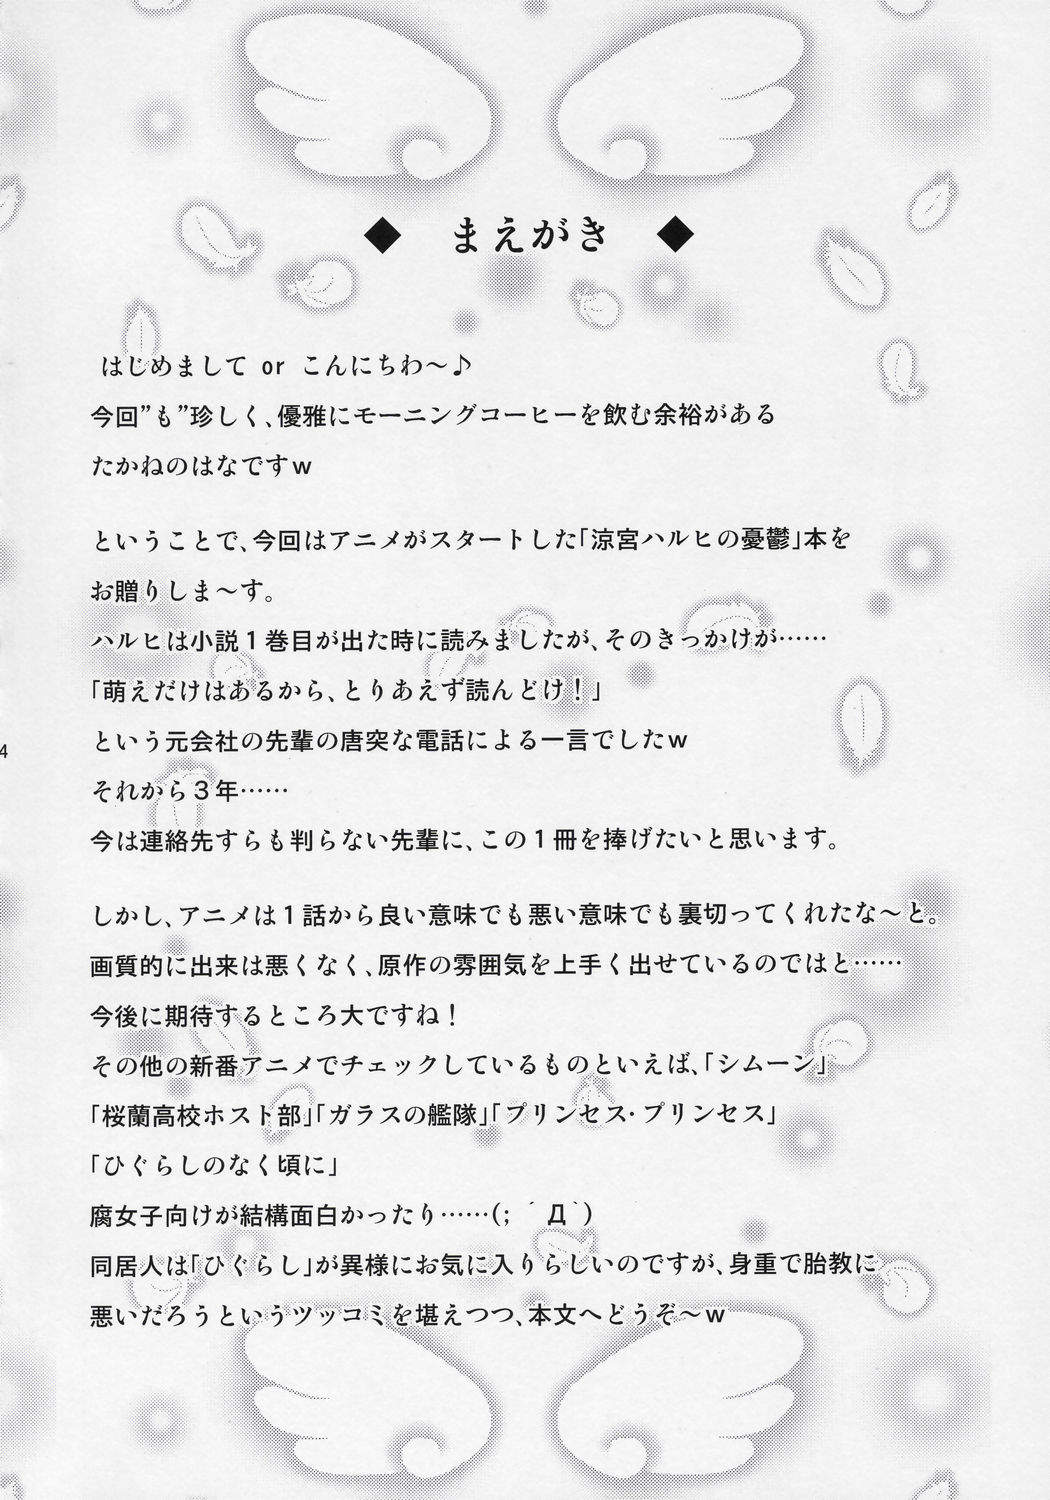 ◆ まえがき ◆
はじめまして or こんにちわ～♪
今回”も”珍しく、優雅にモーニングコーヒーを飲む余裕がある
たかねのはなですw
ということで、今回はアニメがスタートした「涼宮ハルヒの憂鬱」本を
お贈りしま～す。
ハルヒは小説１巻目が出た時に読みましたが、そのきっかけが……
「萌えだけはあるから、とりあえず読んどけ！」
という元会社の先輩の唐突な電話による一言でしたw
それから３年……
今は連絡先すらも判らない先輩に、この１冊を捧げたいと思います。
しかし、アニメは１話から良い意味でも悪い意味でも裏切ってくれたな～と。
画質的に出来は悪くなく、原作の雰囲気を上手く出せているのではと……
今後に期待するところ大ですね！
その他の新番アニメでチェックしているものといえば、「シムーン」
「桜蘭高校ホスト部」「ガラスの艦隊」「プリンセス・プリンセス」
「ひぐらしのなく頃に」
腐女子向けが結構面白かったり……(; ´Д`)
同居人は「ひぐらし」が異様にお気に入りらしいのですが、身重で胎教に
悪いだろうというツッコミを堪えつつ、本文へどうぞ～w
4